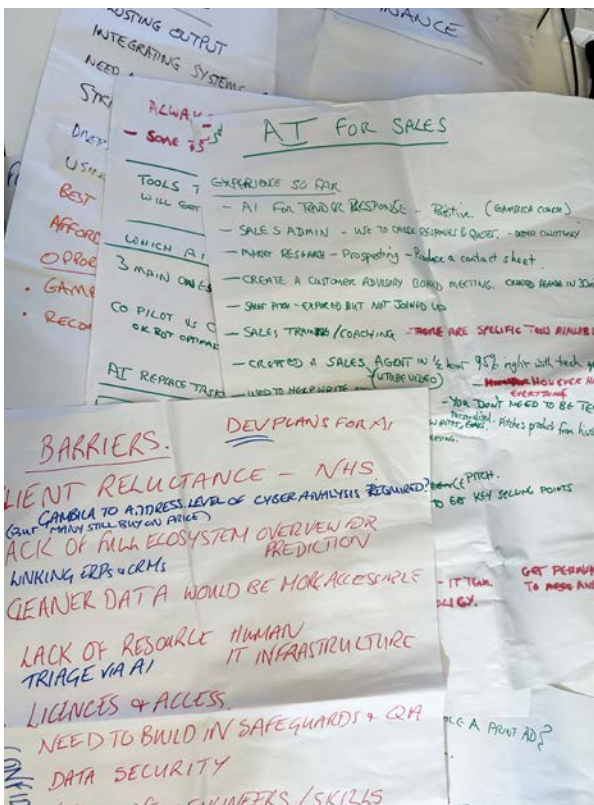 OUTPUT
INTEGRATING SYSTEMS
NEED
USING
BEST
AFFORD
OPPOR
GAMB
RECO
INANCE
ALWAY
- SOME
TOOLS
WILL GET
WHICH AI
3 MAIN ONES
CO PILOT VS C
OR BOT OPTIMA
AI REPLACE TASK
AI FOR SALES
EXPERIENCE SO FAR
- AI FOR TENDER RESPONSE - Positive (GAMBICA COURSE)
- SALES ADMIN - USE TO CHECK RESPONSES & QUOTES.
- MARKET RESEARCH - Prospecting - Produce a contact sheet.
- CREATE A CUSTOMER ADVISORY BOARD MEETING. CREATED AGENDA IN 30
- SALES PITCH - EXPLORED BUT NOT JOINED UP
- SALES TRAINING / COACHING - THERE ARE SPECIFIC TOOLS AVAILABLE
- CREATED A SALES AGENT IN 1/2 hour 95% right with tech
(UTUBE VIDEO)
HOWEVER
EVERYTHING
- USED TO HELP WRITE
- YOU DON'T NEED TO BE TE
Pitches product from
PITCH.
KEY SELLING POINTS
- IT TEAM.
GET
TO
A PRINT AD?
DEV PLANS FOR AI
BARRIERS.
LIENT RELUCTANCE - NHS
GAMBICA TO ADDRESS LEVEL OF CYBER ANALYSIS REQUIRED?
(BUT MANY STILL BUY ON PRICE)
ACK OF FULL ECOSYSTEM OVERVIEW FOR
PREDICTION
LINKING ERPs & CRMs
CLEANER DATA WOULD BE MORE ACCESSIBLE
LACK OF RESOURCE HUMAN
IT INFRASTRUCTURE
TRIAGE VIA AI
LICENCES & ACCESS.
NEED TO BUILD IN SAFEGUARDS & QA
DATA SECURITY
ENGINEERS / SKILLS